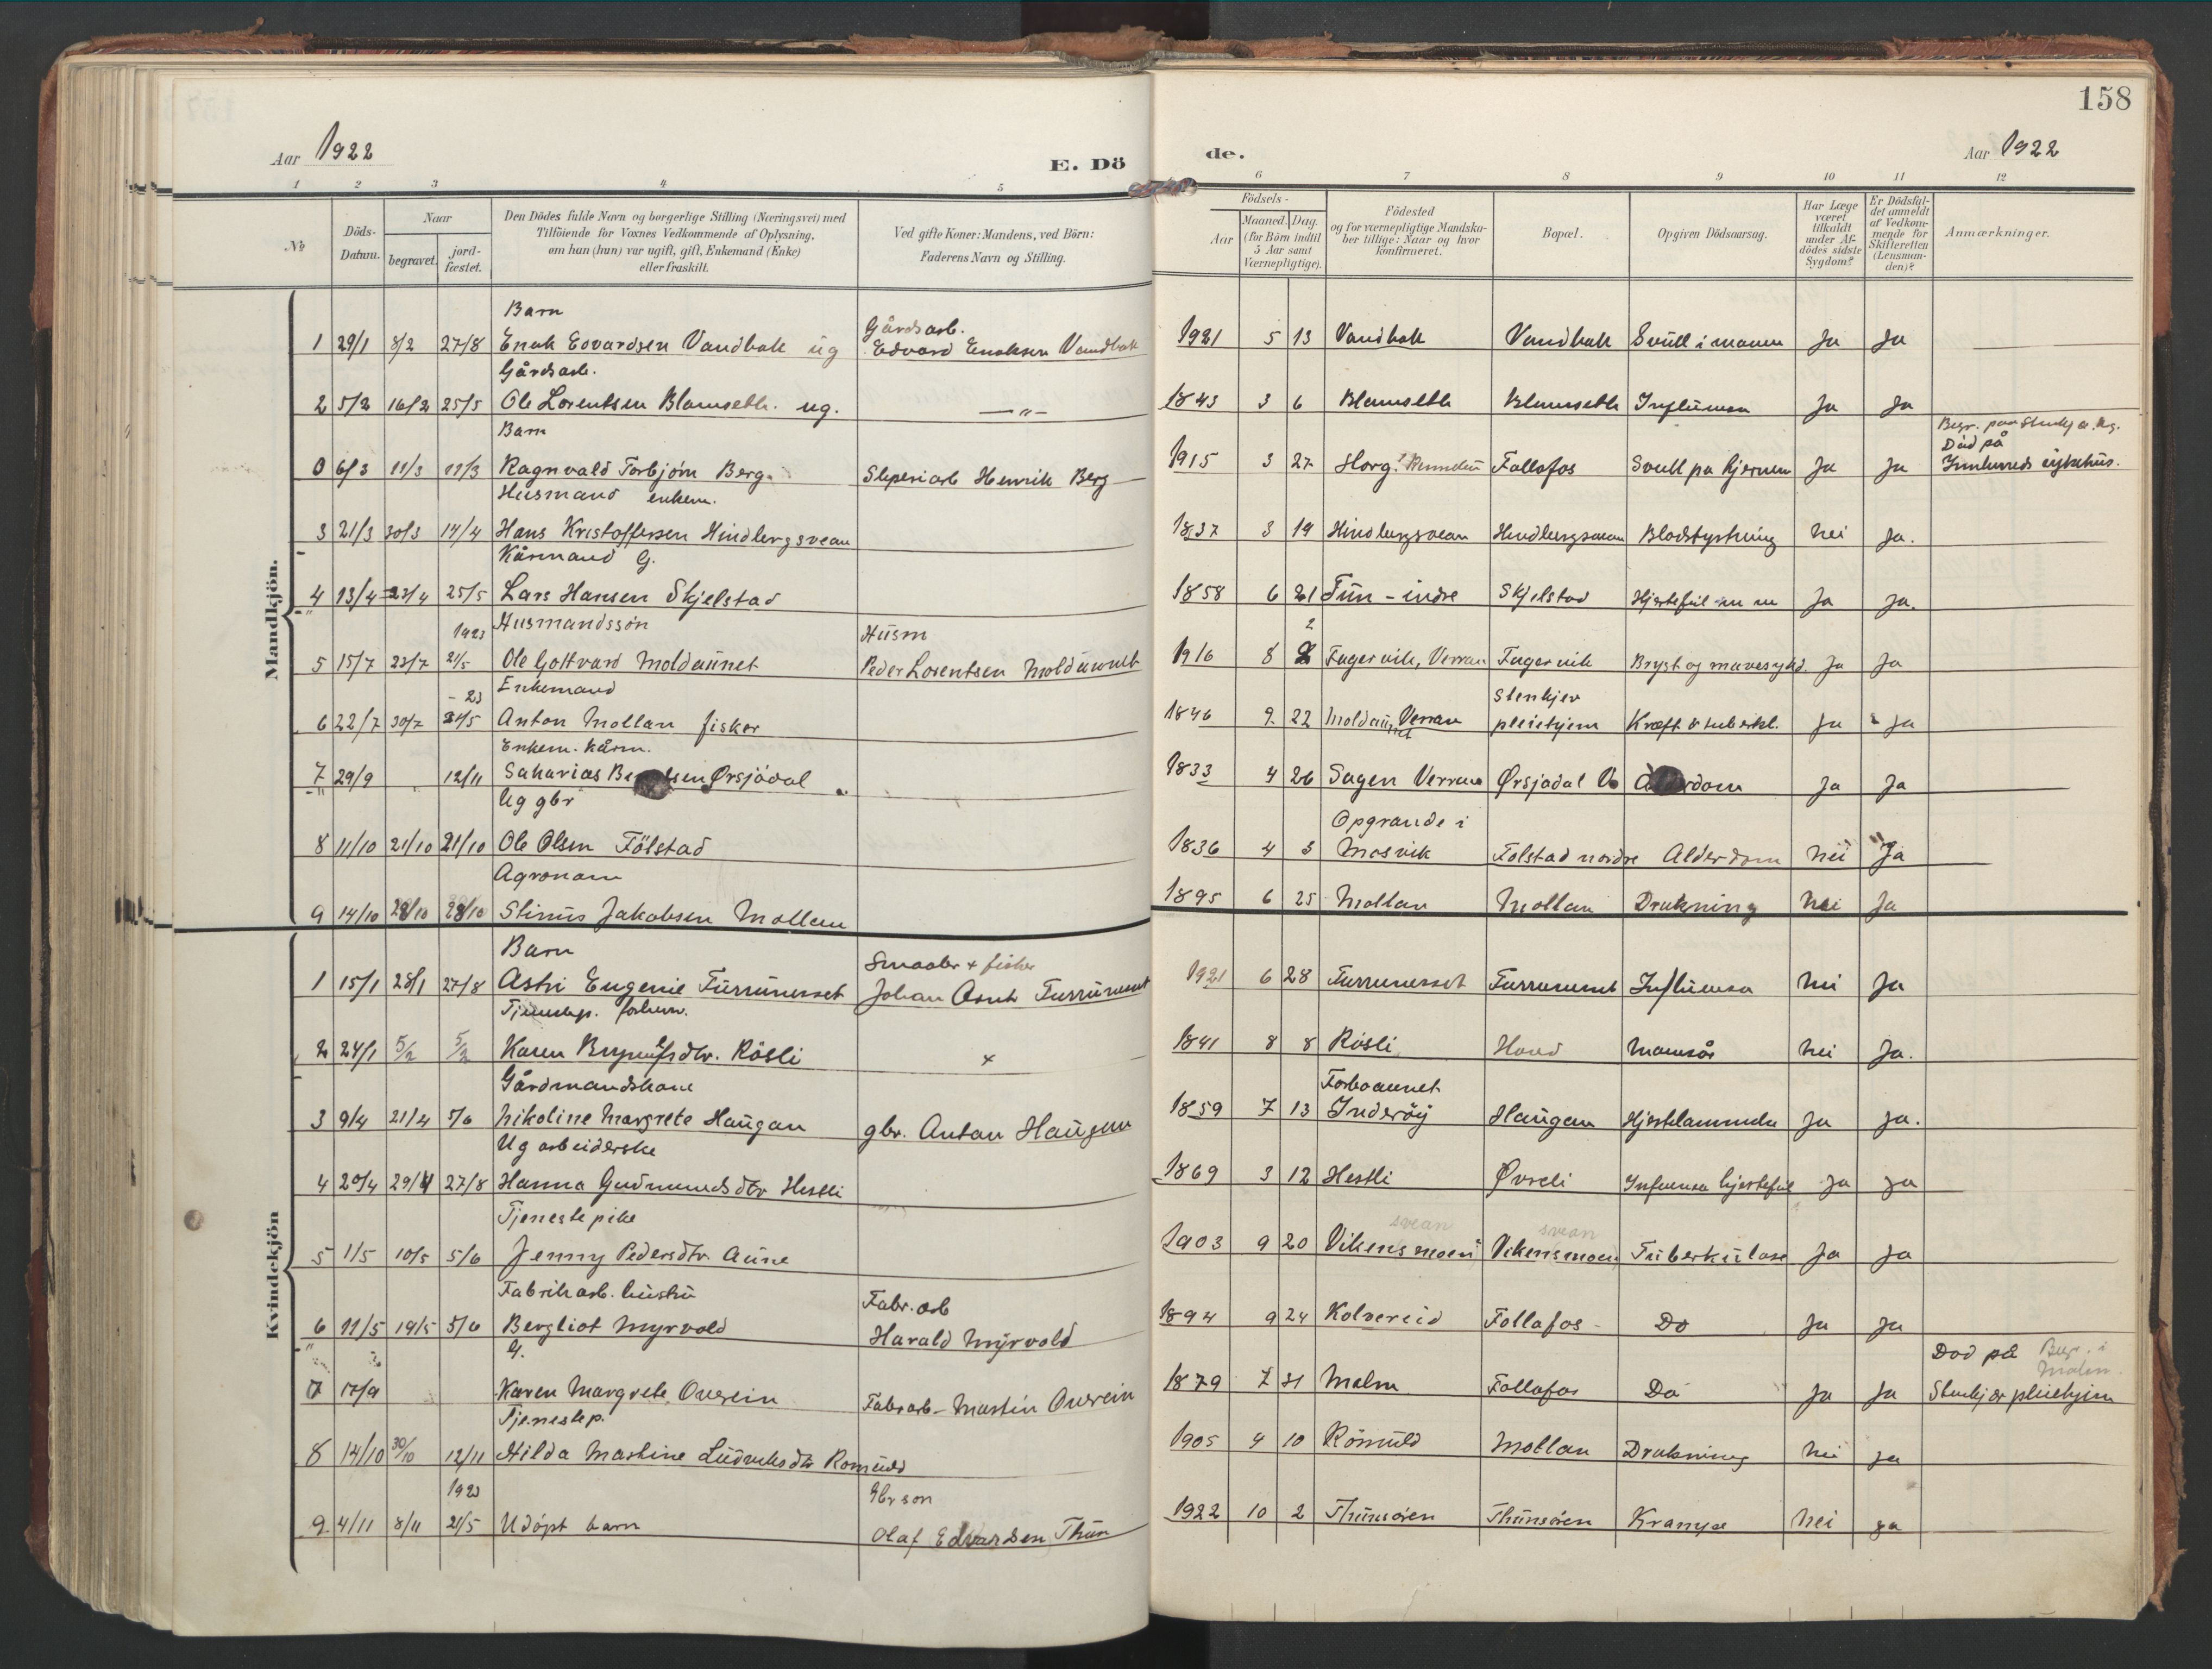 158
Aar 1922 E. Dö de. Aar 1922
1 2 3 4 5 6 7 8 9 10 11 12
No
Döds-Datum.
Naar
begravet.
jord-fæstet.
Den Dödes fulde Navn og borgerlige Stilling (Næringsvei) med
Tilföiende for Voxnes Vedkommende af Oplysning,
om han (hun) var ugift, gift, Enkemand (Enke)
eller fraskilt.
Ved gifte Koner: Mandens, ved Börn:
Faderens Navn og Stilling.
Födsels-
Aar
Maaned. Dag.
(for Börn indtil
5 Aar samt
Værnepligtige).
Födested
og for værnepligtige Mandska-
ber tillige: Naar og hvor
konfirmeret.
Bopæl.
Opgiven Dödsaarsag.
Har Læge
været
tilkaldt
under Af-
dödes sidste
Sygdom?
Er Dödsfal-
det anmeldt
af Vedkom-
mende for
Skifteretten
(Lensman-
den)?
Anmærkninger.
Mandkjön.
Barn Gårdsarb.
1 29/1 8/2 27/8 Enok Edvardsen Vandbak ug Edvard Enoksen Vandbak 1921 5 13 Vandbak Vandbak Svull i maven Ja Ja
Gårdsarb.
2 5/2 16/2 25/5 Ole Lorentsen Blamseth. ug. —"— 1843 3 6 Blamseth Blamseth Influensa Ja Ja
Barn Begr. paa
Död på
0 6/3 11/3 11/3 Ragnvald Torbjörn Berg. Sliperiarb Henrik Berg 1915 3 27 Horg Follafos Svull på hjernen Ja Ja Innherreds sykehus.
Husmand enkem.
3 21/3 30/3 14/4 Hans Kristoffersen Hindbergsvean 1837 3 19 Hindbergsvean Hindbergsvean Blodstyrtning Nei Ja.
Kårmand G.
4 13/4 23/4 25/5 Lars Hansen Skjelstad 1858 6 21 Tun - indre Skjelstad Hjertefeil m m Ja Ja.
1923 Husmandssön Husm 2
5 15/7 23/7 21/5 Ole Gottvard Moldaunet Peder Lorentsen Moldaunet 1916 8 2 Fagervik, Verran Fagervik Bryst og mavesykd. Ja Ja
- 23 Enkemand Stenkjer
6 22/7 30/7 21/5 Anton Mollan fisker 1846 9 22 Moldaunet Verran pleiehjem Kræft & tuberkl. Ja Ja
Enkem. kårm.
7 29/9 12/11 Sakarias Ørsjödal 1833 4 26 Sagen Verran Ørsjödal V. Alderdom Ja Ja
Ug gbr Opgrande i
8 11/10 21/10 21/10 Ole Olsen Fölstad 1836 4 3 Mosvik Folstad nordre Alderdom Nei Ja
Agronom
9 14/10 28/10 28/10 Stinus Jakobsen Mollan 1895 6 25 Mollan Mollan Drukning Nei Ja
Kvindekjön
Barn Smaabr + fisker
1 15/1 28/1 27/8 Astri Eugenie Furrunesset Johan Furrunesset 1921 6 28 Furrunesset Furrunesset Influensa Nei Ja
Tjenestep. forhenv.
2 24/1 5/2 5/2 Karen Rösli + 1841 8 8 Rösli Nei Ja.
Gårdmandskone Forboaunet
3 9/4 21/4 5/6 Nikoline Margrete Haugan gbr. Anton Haugan 1859 7 13 Inderöy Haugan Hjertelammelse Ja Ja.
Ug arbeiderske
4 20/4 29/4 27/8 Hanna Gudmundsdtr Hestli 1869 3 12 Hestli Øvreli Influensa hjertefeil Ja Ja
Tjenestepike svean svean
5 1/5 10/5 5/6 Jenny Pedersdtr. Aune 1903 9 20 Vikensmoen Vikensmoen Tuberkulose Ja Ja
Fabrikarb. hustru Fabr. arb
6 11/5 19/5 5/6 Bergliot Myrvold Harald Myrvold 1894 9 24 Kolvereid Follafos Do Ja Ja
G. Død på Begr. i Malm.
7 17/9 Karen Margrete Overein Fabrarb - Martin Overein 1879 7 31 Malm Follafos Do Ja Ja Stenkjær pleiehjem
Tjenestep.
8 14/10 30/10 12/11 Hilda Mastine Ludviksdtr Romuld 1905 4 10 Römuld Mollan Drukning Nei Ja
1923 Gbr son
9 4/11 8/11 21/5 Udöpt barn Olaf Edvardsen Thun 1922 10 2 Thunsören Thunsören Krampe Nei Ja